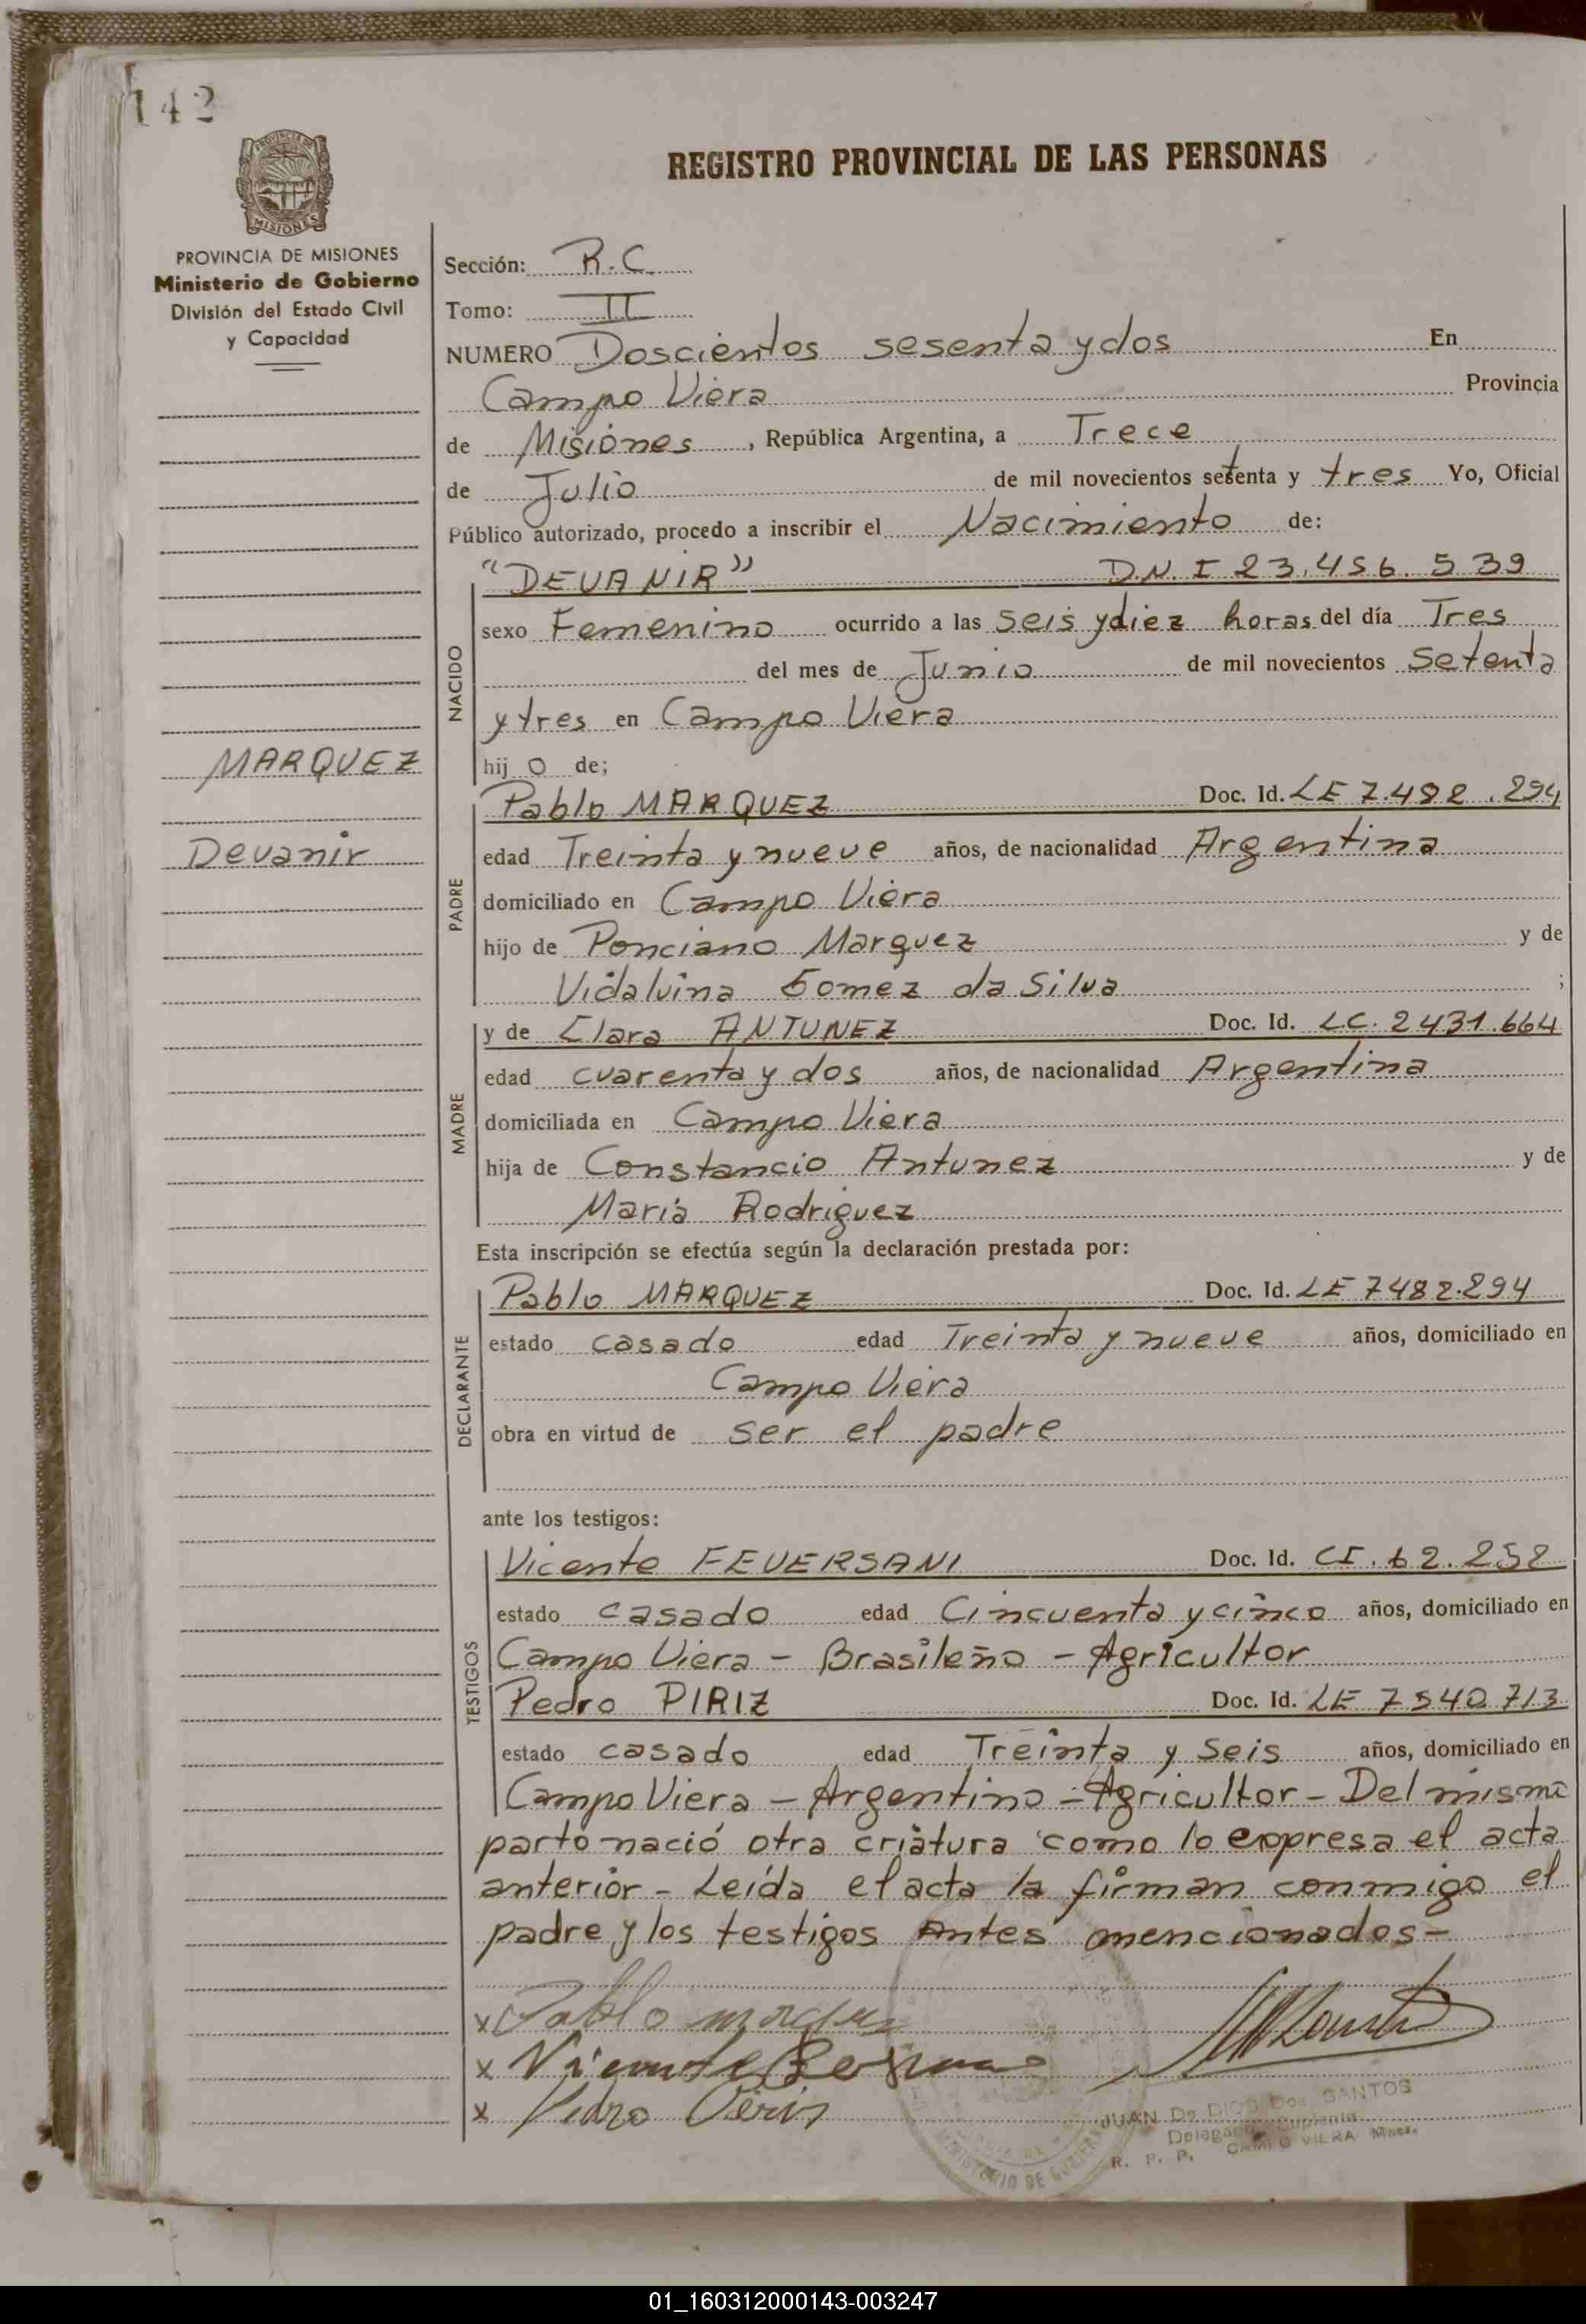 142
REGISTRO PROVINCIAL DE LAS PERSONAS
MISIONES
PROVINCIA DE MISIONES
Ministerio de Gobierno
División del Estado Civil
y Capacidad
Sección: R.C.
Tomo: II
NUMERO Doscientos sesenta y dos En
Campo Viera Provincia
de Misiones, República Argentina, a Trece
de Julio de mil novecientos setenta y tres Yo, Oficial
Público autorizado, procedo a inscribir el Nacimiento de:
"DEVANIR" D.N.I 23.456.539
NACIDO
sexo Femenino ocurrido a las seis y diez horas del día Tres
del mes de Junio de mil novecientos setenta
y tres en Campo Viera
MARQUEZ
hij o de;
Pablo MARQUEZ Doc. Id. LE 7.482.294
Devanir
PADRE
edad Treinta y nueve años, de nacionalidad Argentina
domiciliado en Campo Viera
hijo de Ponciano Marquez y de
Vidalvina Gomez da Silva ;
y de Clara ANTUNEZ Doc. Id. LC. 2431.664
MADRE
edad cuarenta y dos años, de nacionalidad Argentina
domiciliada en Campo Viera
hija de Constancio Antunez y de
Maria Rodriguez
Esta inscripción se efectúa según la declaración prestada por:
Pablo MARQUEZ Doc. Id. LE 7482.294
DECLARANTE
estado casado edad Treinta y nueve años, domiciliado en
Campo Viera
obra en virtud de ser el padre
ante los testigos:
Vicente FEVERSANI Doc. Id. CI. 62.252
TESTIGOS
estado casado edad Cincuenta y cinco años, domiciliado en
Campo Viera - Brasileño - Agricultor
Pedro PIRIZ Doc. Id. LE 7540.713
estado casado edad Treinta y seis años, domiciliado en
Campo Viera - Argentino - Agricultor - Del mismo
parto nació otra criatura como lo expresa el acta
anterior - Leída el acta la firman conmigo el
padre y los testigos Antes mencionados -
x Pablo
x Vicente
x Pedro
JUAN De DIOS Dos SANTOS
Delegado Suplente
R. P. P. CAMPO VIERA Mnes.
MINISTERIO DE GOBIERNO
01_160312000143-003247